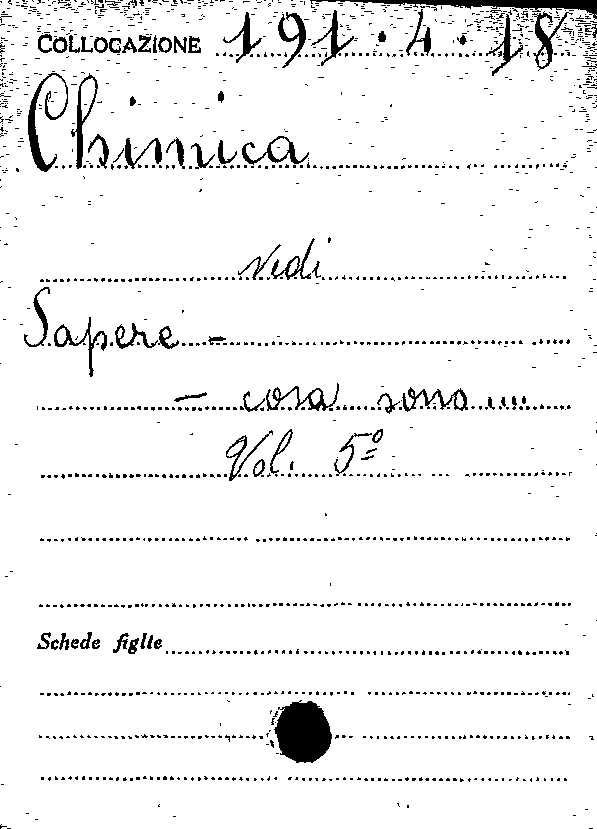 COLLOCAZIONE 191.4.18
Chimica
vedi
Sapere -
- cosa sono ....
Vol. 5º
Schede figlie